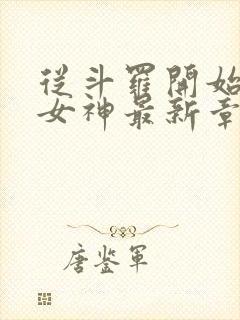 從斗羅開始
女神最新章
唐鉴軍